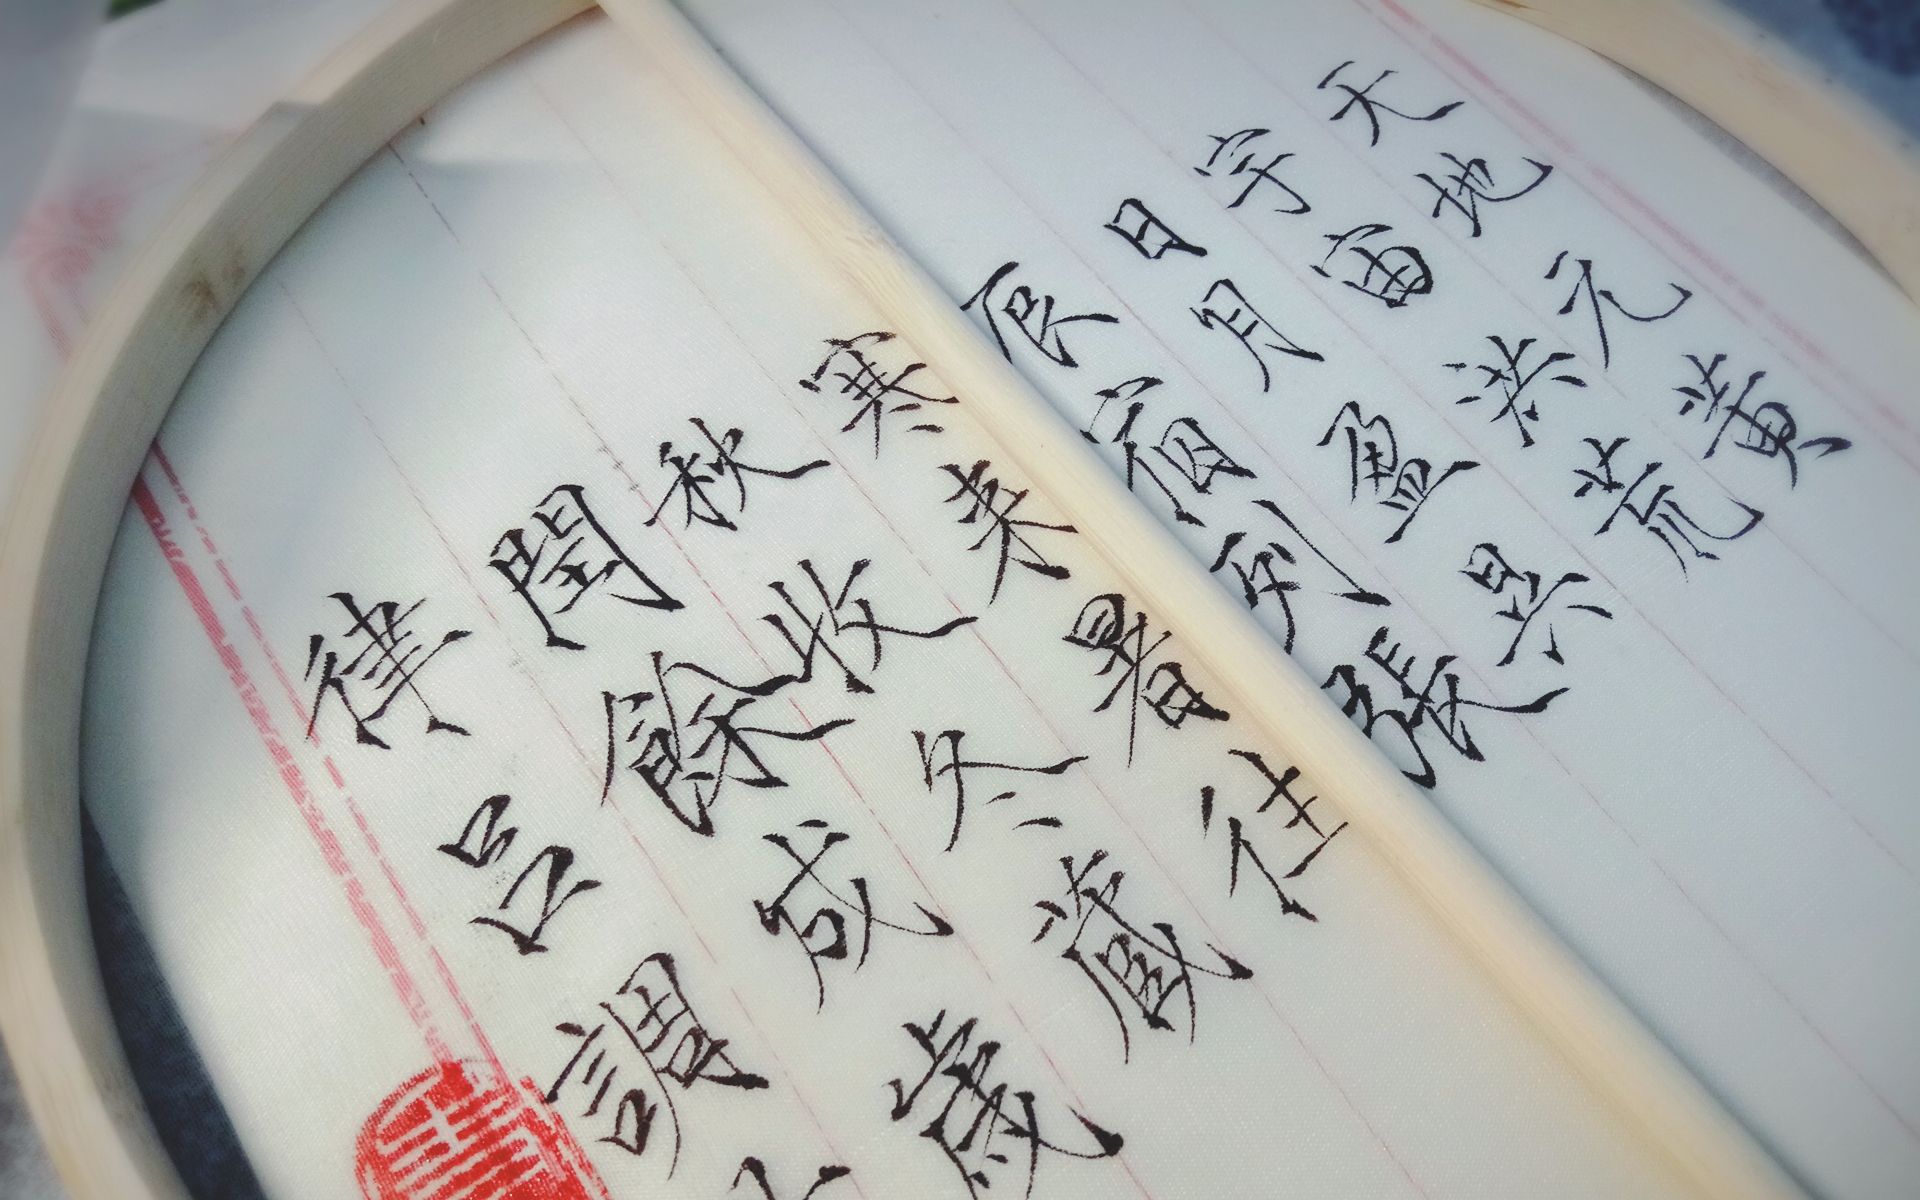 天地元黄
宇宙洪荒
日月盈昃
辰宿列張
寒来暑往
秋收冬藏
閏餘成歲
律呂調